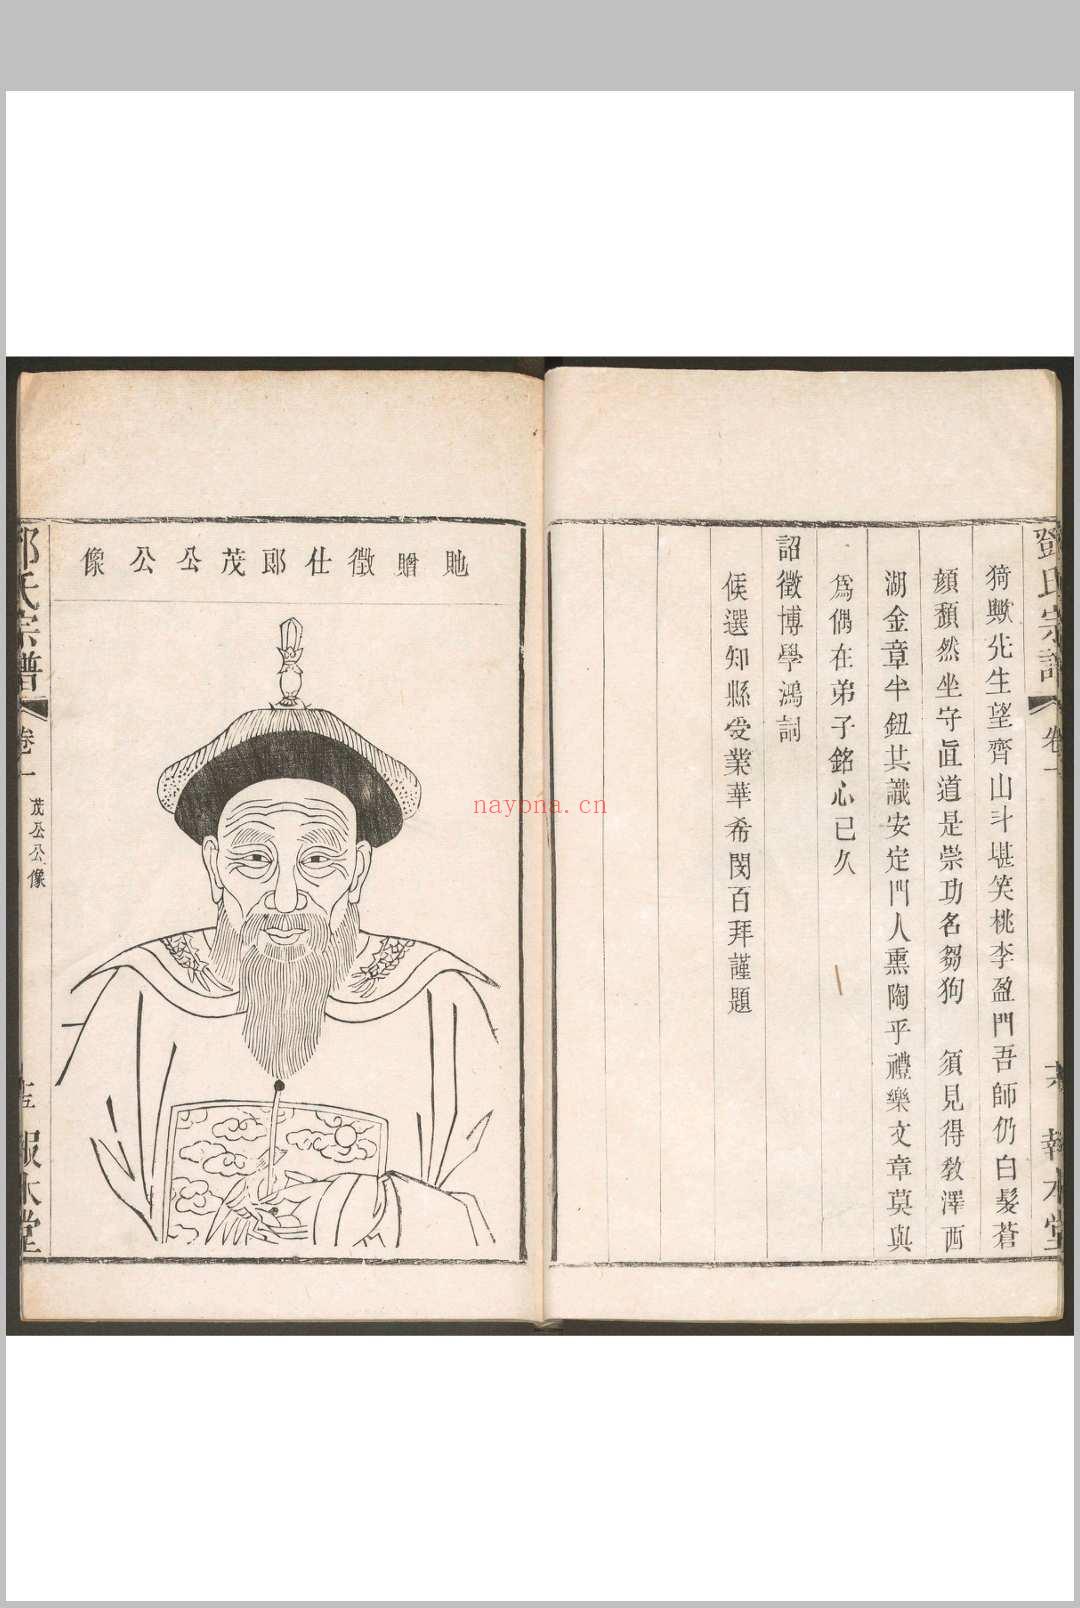 猗歟先生望齊山斗堪笑桃李盈門吾師仍白髮蒼
顔頹然坐守眞道是崇功名芻狗　須見得敎澤西
湖金章半鈕其識安定門人熏陶乎禮樂文章莫與
爲偶在弟子銘心已久
詔徵博學鴻詞
候選知縣受業華希閔百拜謹題
鄧氏宗譜
卷一
報本堂
貤贈徵仕郎茂公公像
宗譜
卷一
茂公公像
報本堂
nayona.cn